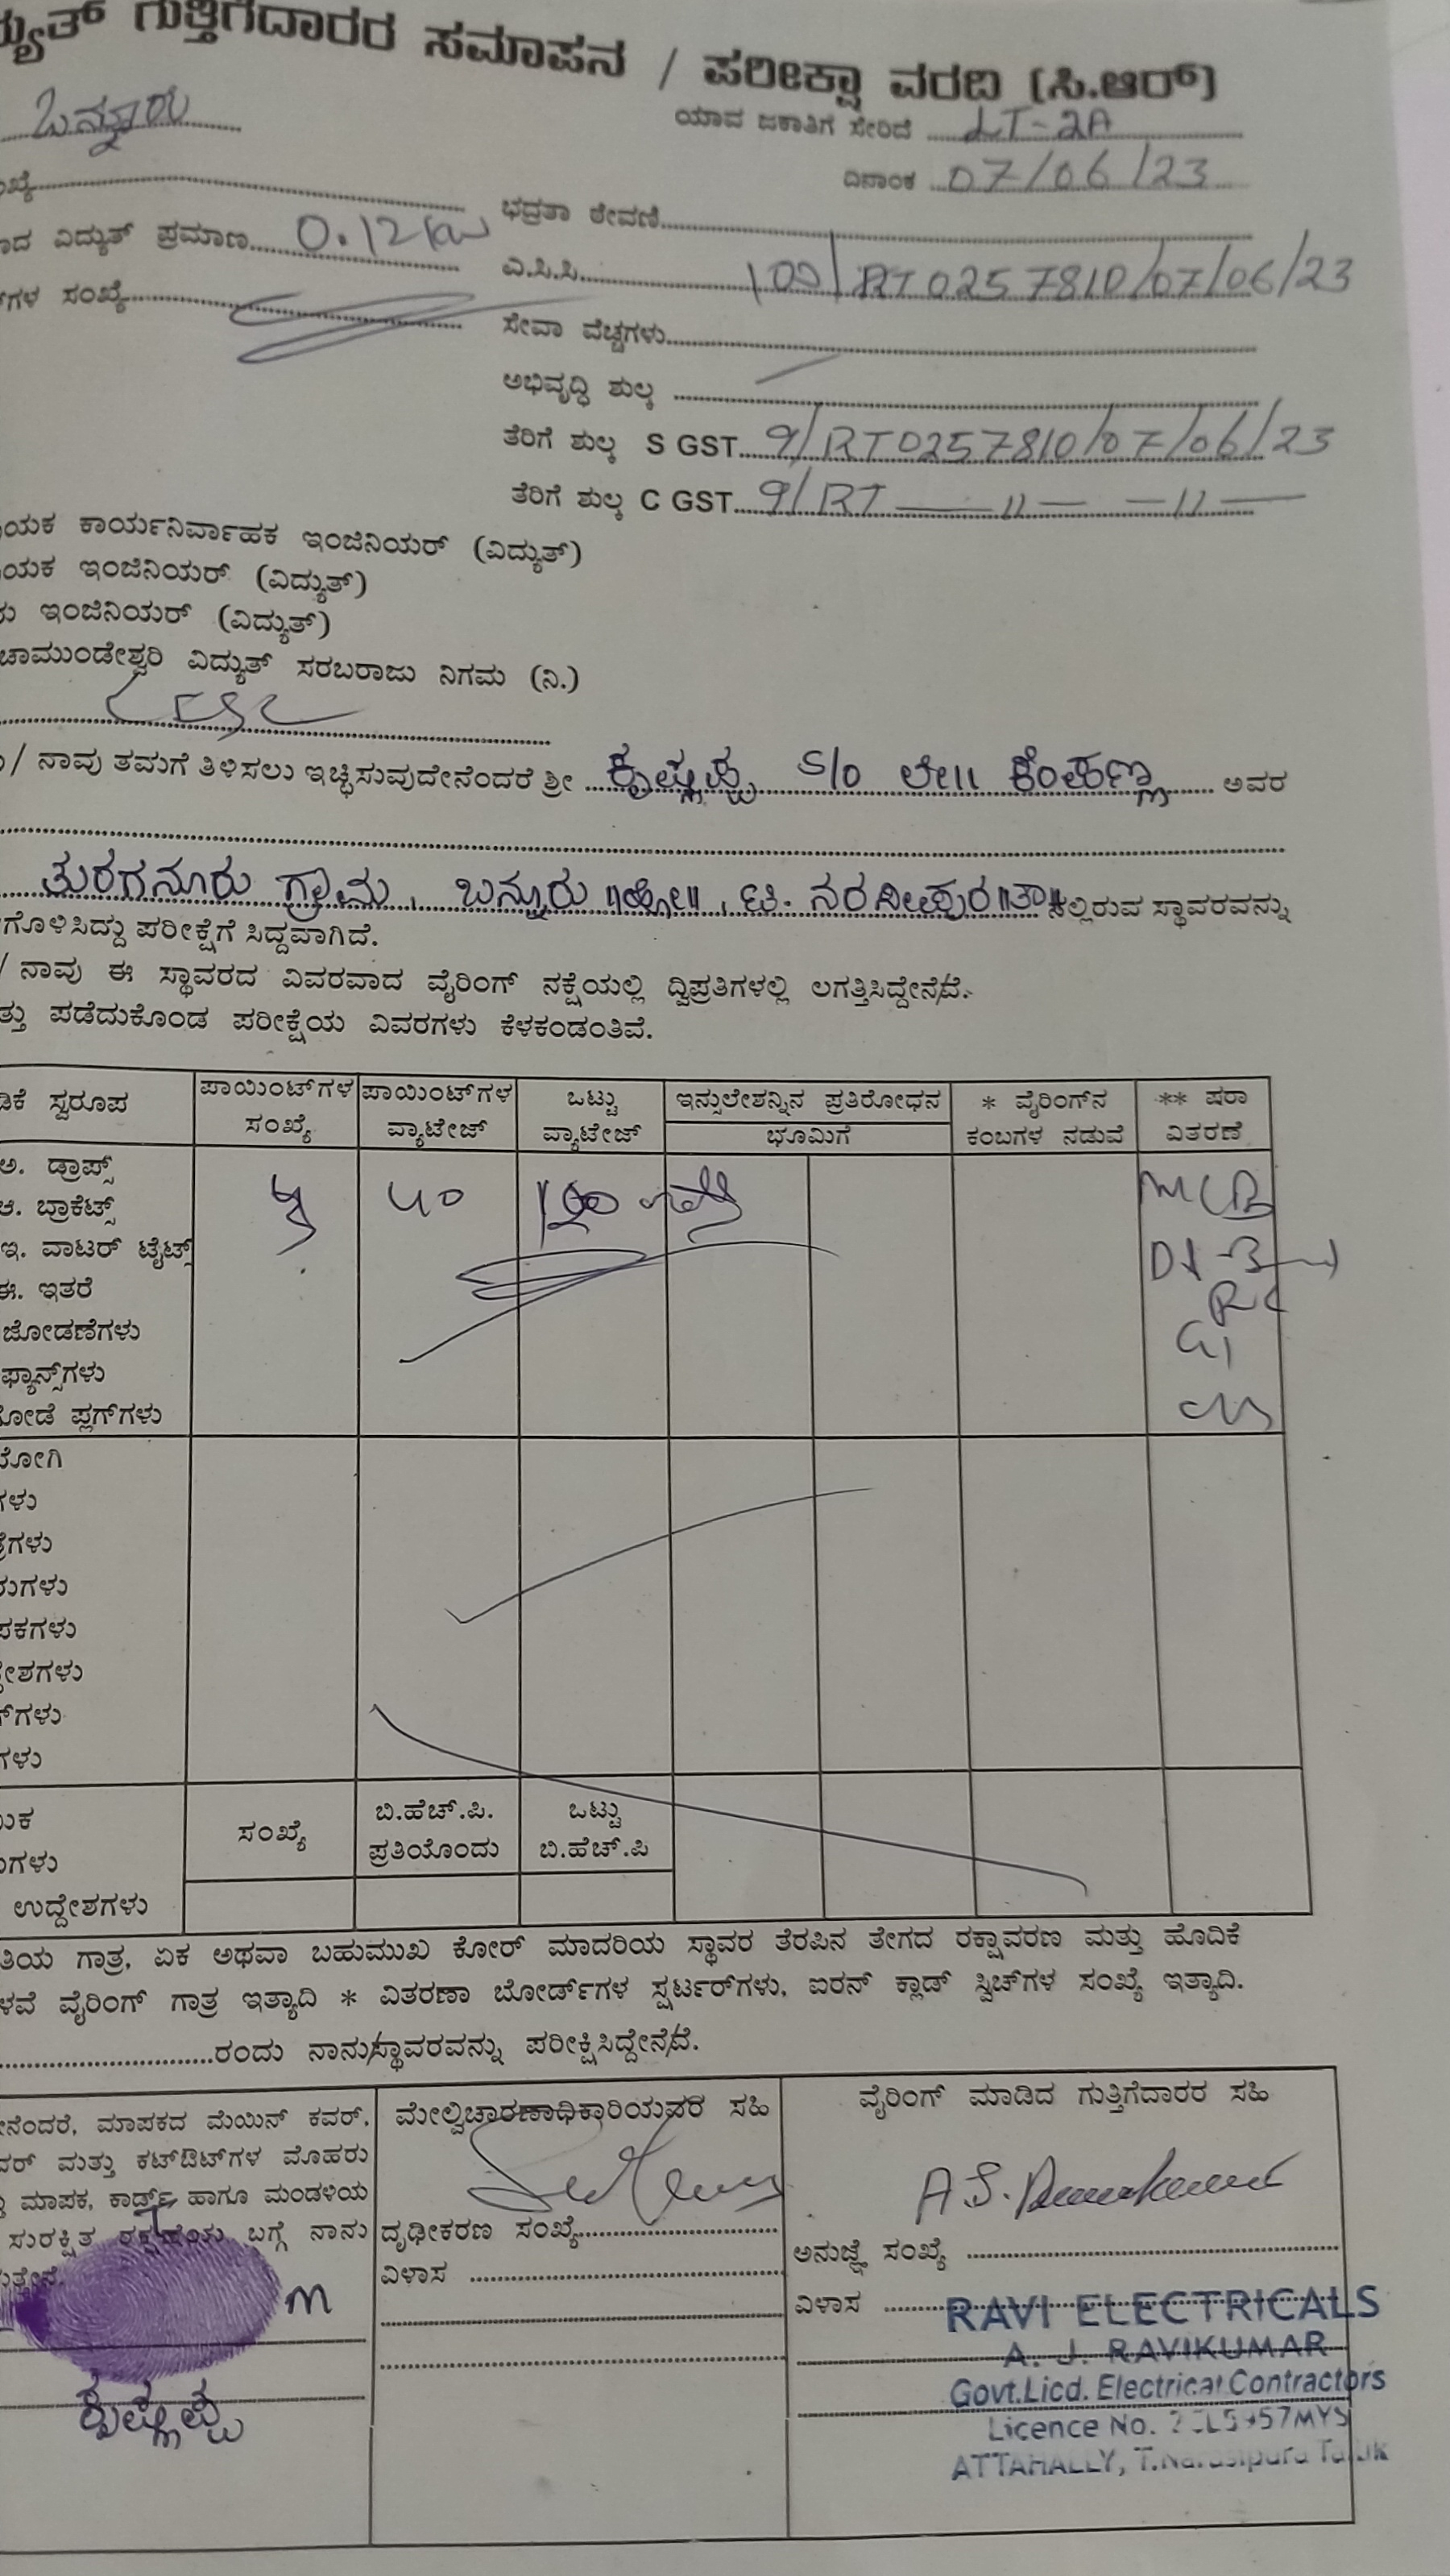 ಗುತ್ತಿಗೆದಾರರ ಸಮಾಪನ / ಪರೀಕ್ಷಾ ವರದಿ (ಸಿ.ಆರ್)
ಬನ್ನೂರು
ಯಾವ ಜಕಾತಿಗೆ ಸೇರಿದೆ LT-2A
ದಿನಾಂಕ 07/06/23
ಭದ್ರತಾ ಠೇವಣಿ
ವಿದ್ಯುತ್ ಪ್ರಮಾಣ 0.12 kw
ಎ.ಸಿ.ಸಿ 100/RT0257810/07/06/23
ಸಂಖ್ಯೆ
ಸೇವಾ ವೆಚ್ಚಗಳು
ಅಭಿವೃದ್ಧಿ ಶುಲ್ಕ
ತೆರಿಗೆ ಶುಲ್ಕ S GST 9/RT0257810/07/06/23
ತೆರಿಗೆ ಶುಲ್ಕ C GST 9/RT —— 11 — — 11 —
ಕಾರ್ಯನಿರ್ವಾಹಕ ಇಂಜಿನಿಯರ್ (ವಿದ್ಯುತ್)
ಇಂಜಿನಿಯರ್ (ವಿದ್ಯುತ್)
ಇಂಜಿನಿಯರ್ (ವಿದ್ಯುತ್)
ಚಾಮುಂಡೇಶ್ವರಿ ವಿದ್ಯುತ್ ಸರಬರಾಜು ನಿಗಮ (ನಿ.)
CESC
/ ನಾವು ತಮಗೆ ತಿಳಿಸಲು ಇಚ್ಛಿಸುವುದೇನೆಂದರೆ ಶ್ರೀ ಕೃಷ್ಣಪ್ಪ S/o ಲೇ|| ಕೆಂಪಣ್ಣ ಅವರ
ತುರಗನೂರು ಗ್ರಾಮ, ಬನ್ನೂರು ||ಹೋ||, ಟಿ. ನರಸೀಪುರ ||ತಾ|| ನಲ್ಲಿರುವ ಸ್ಥಾವರವನ್ನು
ಗೊಳಿಸಿದ್ದು ಪರೀಕ್ಷೆಗೆ ಸಿದ್ದವಾಗಿದೆ.
/ ನಾವು ಈ ಸ್ಥಾವರದ ವಿವರವಾದ ವೈರಿಂಗ್ ನಕ್ಷೆಯಲ್ಲಿ ದ್ವಿಪ್ರತಿಗಳಲ್ಲಿ ಲಗತ್ತಿಸಿದ್ದೇನೆ/ವೆ.
ಪಡೆದುಕೊಂಡ ಪರೀಕ್ಷೆಯ ವಿವರಗಳು ಕೆಳಕಂಡಂತಿವೆ.
ಸ್ವರೂಪ
ಪಾಯಿಂಟ್‌ಗಳ ಸಂಖ್ಯೆ
ಪಾಯಿಂಟ್‌ಗಳ ವ್ಯಾಟೇಜ್
ಒಟ್ಟು ವ್ಯಾಟೇಜ್
ಇನ್ಸುಲೇಶನ್ನಿನ ಪ್ರತಿರೋಧನ
ಭೂಮಿಗೆ
* ವೈರಿಂಗ್‌ನ ಕಂಬಗಳ ನಡುವೆ
** ಷರಾ ವಿತರಣೆ
ಅ. ಡ್ರಾಪ್ಸ್
ಆ. ಬ್ರಾಕೆಟ್ಸ್
40
MCB
ಇ. ವಾಟರ್ ಟೈಟ್ಸ್
ಈ. ಇತರೆ
ಜೋಡಣೆಗಳು
GI
ಫ್ಯಾನ್ಸ್‌ಗಳು
ಗೋಡೆ ಪ್ಲಗ್‌ಗಳು
ಸಂಖ್ಯೆ
ಬಿ.ಹೆಚ್.ಪಿ. ಪ್ರತಿಯೊಂದು
ಒಟ್ಟು ಬಿ.ಹೆಚ್.ಪಿ
ಉದ್ದೇಶಗಳು
ಗಾತ್ರ, ಏಕ ಅಥವಾ ಬಹುಮುಖ ಕೋರ್ ಮಾದರಿಯ ಸ್ಥಾವರ ತೆರಪಿನ ತೇಗದ ರಕ್ಷಾವರಣ ಮತ್ತು ಹೊದಿಕೆ
ವೈರಿಂಗ್ ಗಾತ್ರ ಇತ್ಯಾದಿ * ವಿತರಣಾ ಬೋರ್ಡ್‌ಗಳ ಸ್ಟರ್ಟರ್‌ಗಳು, ಐರನ್ ಕ್ಲಾಡ್ ಸ್ವಿಚ್‌ಗಳ ಸಂಖ್ಯೆ ಇತ್ಯಾದಿ.
ರಂದು ನಾನು/ಸ್ಥಾವರವನ್ನು ಪರೀಕ್ಷಿಸಿದ್ದೇನೆ/ವೆ.
ಮಾಪಕದ ಮೆಯಿನ್ ಕವರ್,
ಮತ್ತು ಕಟ್‌ಔಟ್‌ಗಳ ಮೊಹರು
ಮಾಪಕ, ಕಾರ್ಡ್ಸ್ ಹಾಗೂ ಮಂಡಳಿಯ
ಸುರಕ್ಷಿತ ಬಗ್ಗೆ ನಾನು
ಕೃಷ್ಣಪ್ಪ
ಮೇಲ್ವಿಚಾರಣಾಧಿಕಾರಿಯವರ ಸಹಿ
ದೃಢೀಕರಣ ಸಂಖ್ಯೆ
ವಿಳಾಸ
ವೈರಿಂಗ್ ಮಾಡಿದ ಗುತ್ತಿಗೆದಾರರ ಸಹಿ
ಅನುಜ್ಞೆ ಸಂಖ್ಯೆ
ವಿಳಾಸ
RAVI ELECTRICALS
A. J. RAVIKUMAR
Govt.Licd. Electrical Contractors
Licence No.
ATTAHALLY, T.Narasipura Taluk